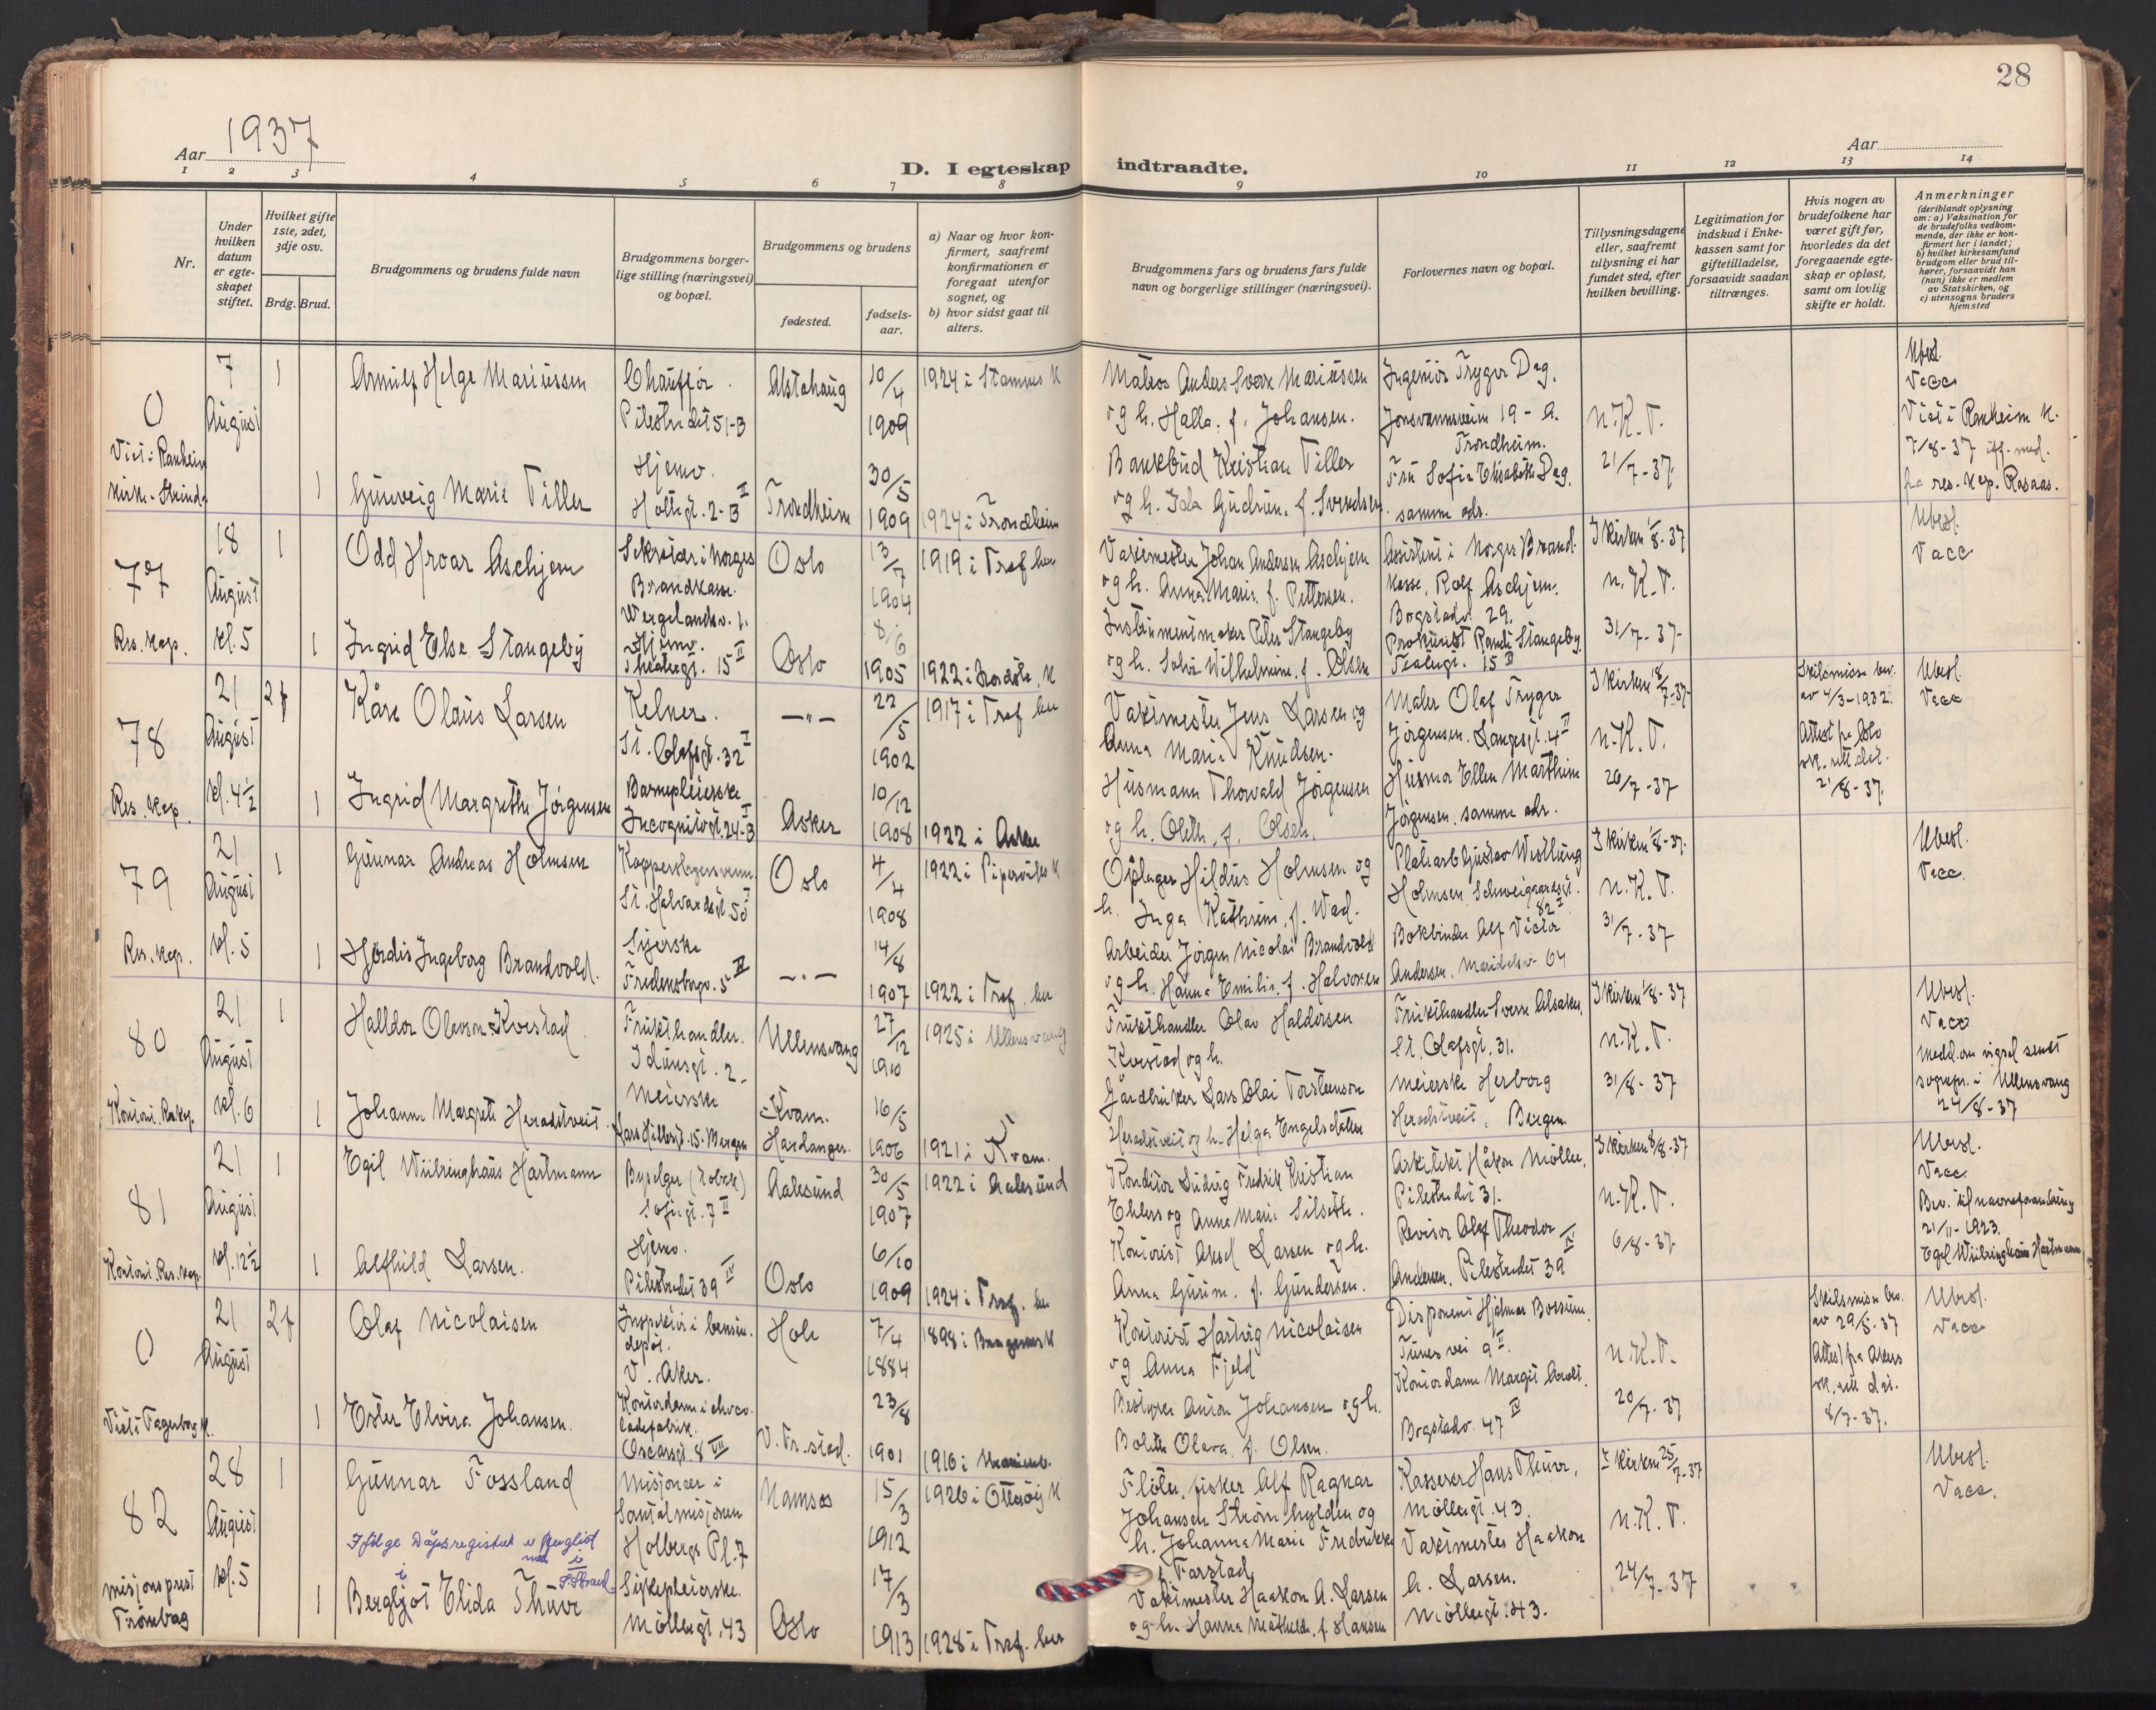 28
1937
Aar
Aar
D. I egteskap indtraadte.
1 2 3 4 5 6 7 8 9 10 11 12 13 14
Nr.
Under hvilken datum er egte-skapet stiftet.
Hvilket gifte 1ste, 2det, 3dje osv.
Brdg. Brud.
Brudgommens og brudens fulde navn
Brudgommens borger-lige stilling (næringsvei) og bopæl.
Brudgommens og brudens
fødested.
fødsels-aar.
a) Naar og hvor kon-firmert, saafremt konfirmationen er foregaat utenfor sognet, og
b) hvor sidst gaat til alters.
Brudgommens fars og brudens fars fulde navn og borgerlige stillinger (næringsvei).
Forlovernes navn og bopæl.
Tillysningsdagene eller, saafremt tillysning ei har fundet sted, efter hvilken bevilling.
Legitimation for indskud i Enke-kassen samt for giftetilladelse, forsaavidt saadan tiltrænges.
Hvis nogen av brudefolkene har været gift før, hvorledes da det foregaaende egte-skap er opløst, samt om lovlig skifte er holdt.
Anmerkninger
(deriblandt oplysning om: a) Vaksination for de brudefolks vedkom-mende, der ikke er kon-firmert her i landet; b) hvilket kirkesamfund brudgom eller brud til-hører, forsaavidt han (hun) ikke er medlem av Statskirken, og c) utensogns bruders hjemsted
0
Viet i Ranheim
kirke
7 August
1
Arnulf Helge Mariussen
Chauffør.
Pilestredet 51-B
Alstahaug
10/4 1909
1924 i Stamnes K
Matros Anders Sverre Mariussen
og h. Halla. f. Johansen.
Ingeniør Trygve Dag.
Jonsvannsveien 19-a.
Trondheim.
n.K.T.
21/7-37.
Ubesl.
Vacc
Viet i Ranheim K.
7/8-37
res. kap. Rosaas.
1
Gunveig Marie Tiller
Hjemv.
Holtegt. 2-B II
Trondheim
30/5 1909
1924 i Trondheim
Bankbud Kristian Tiller
og h. Ida Gudrun. f. Svendsen.
Fru Sofie Elisabeth Dag.
samme adr.
77
Res. kap.
18 August kl. 5
1
Odd Hroar Aschjem
Sekretær i Norges
Brandkasse.
Wergelandsv. 1.
Oslo
13/7 1904
1919 i Tref. her
Vaktmester Johan Andersen Aschjem
og h. Anna Marie. f. Pettersen.
Assistent i Norges Brand-
kasse, Rolf Aschjem.
Bogstadv. 29.
I kirken 1/8-37
n.K.T.
31/7-37-
Ubesl.
Vacc
1
Ingrid Else Stangeby
Hjemv.
Theatergt. 15 II
Oslo
8/6 1905
1922 i
Instrumentmaker Peter Stangeby
og h. Solvi Wilhelmine. f. Olsen
Prokurist Randi Stangeby.
Teatergt. 15 II
78
Res. kap.
21 August kl. 4½
2f
Kåre Olaus Larsen
Kelner.
St. Olafsgt. 32 I
—"—
22/5 1902
1917 i Tref. her
Vaktmester Jens Larsen og
Anna Marie Knudsen.
Maler Olaf Trygve
Jørgensen. Langesgt. 4 II
I kirken 18/7-37-
n.K.T.
20/7-37
Skilsmisse bev.
av 4/3-1932.
Attest fra Oslo
sk.rett dat.
21/8-37.
Ubesl.
Vacc
1
Ingrid Margrethe Jørgensen
Barnepleierske
Incognitogt. 24-B I
Asker
10/12 1908
1922 i Asker
Husmann Thorvald Jørgensen
og h. Oleth. f. Olsen.
Husmor Ellen Marthine
Jørgensen. samme adr.
79
Res. kap.
21 August kl. 5
1
Gunnar Andreas Holmsen
St. Halvardsgt. 50 I
Oslo
4/4 1908
1922 i Piperviks K
Opsager Hildus Holmsen og
h. Inga Kathrine. f. Wad.
Platearb. Gustav Westlung
Holmsen, Schweigaardsgt.
82 I
I kirken 1/8-37.
n.K.T.
31/7-37
Ubesl.
Vacc.
1
Hjørdis Ingeborg Brandvold.
Syerske
Fredensborgv. 5 IV
—"—
14/8 1907
1922 i Tref. her
Arbeider Jørgen Nicolai Brandvold
og h. Hanna Emilie. f. Halvorsen
Bokbinder Alf Victor
Andersen, Maridalsv. 64
80
Kontoni. Res.kap.
21 August kl. 6
1
Halldor Olavson Kvestad
Frukthandler.
Idunsgt. 2-
Ullensvang
27/12 1900
1925 i Ullensvang
Frukthandler Olav Haldorsen
Kvestad og h.
Frukthandler Sverre Alsaker,
St. Olafsgt. 31.
I kirken 1/8-37
n.K.T.
31/8-37
Ubesl.
Vacc
Medd. om vigsel sendt
sognepr. i Ullensvang
24/8-37
1
Johanne Margrete Heradstveit.
Meierske
Lars Hillesgt. 15. Bergen
Kvam.
Hardanger.
16/5 1906
1921 i Kvam.
Gårdbruker Lars Olai Torsteinson
Heradstveit og h. Helga Engelsdatter
Meierske Herborg
Heradstveit, Bergen
81
Kontoni. Res. kap.
21 August kl. 12½
1
Egil Wiibringhaus Hartmann
Byselger (Tobak)
Sofiegt. 7 II
Aalesund
30/5 1907
1922 i Aalesund
Konditor Ludvig Fredrik Kristian
Ehlers og Anne Marie Silseth.
Arkitekt Håkon Møller,
Pilestredet 31.
I kirken 8/8-37
n.K.T.
6/8-37-
Ubesl.
Vacc.
Bev. til navneforandring
21/11-1923.
Egil Wiibringhaus Hartmann
1
Alfhild Larsen.
Hjemv.
Pilestredet 39 IV
Oslo
6/10 1909
1924 i Tref. her
Kontorist Aksel Larsen og h.
Anna Gurine. f. Gundersen.
Revisor Olaf Theodor
Andersen. Pilestredet 39 IV
0
Viet i Fagerborg K.
21 August
2f
Olaf Nicolaisen
Inspektør i bensin-
depot.
V. Aker.
Hole
7/4 1884
1898 i Bragernes K
Kontorist Hartvig Nicolaisen
og Anna Fjeld
Disponent Hjalmar Boesum.
Tunes vei 9 II.
n.K.T.
20/7-37
Skilsmisse bev.
av 29/5-37
Attest fra Akers
sk.rett dat.
8/7-37.
Ubesl.
Vacc
1
Ester Elvira Johansen.
Kontordame i choco-
ladefabrik.
Oscarsgt. 8 VII
V. Fr.stad.
23/8 1901
1916 i
Bestyrer Anton Johansen og h.
Bolette Olava. f. Olsen.
Kontordame Margit
Bogstadv. 47 IV
82
misjonsprest
21
28 August kl. 5
1
Gunnar Fossland
Misjonær i
Santalmisjonen
Holbergs Pl. 7
Namsos
15/3 1912
1926 i Otterøy K
Fløter, fisker Alf Ragnar
Johansen Strømhylden og
h. Johanna Marie Fredrikke
f. Farstad.
Kasserer Hans Thuve,
Møllergt. 43.
I kirken 25/7-37
n.K.T.
24/7-37
Ubesl.
Vacc.
Ifølge Dåpsregistret er Bergliot
med i
1
Bergljot Elida Thuve
Sykepleierske.
Møllergt. 43
Oslo
17/3 1913
1928 i Tref. her
Vaktmester Haakon A. Larsen
og h. Hanna Mathilde. f. Hansen
Vaktmester Haakon
A. Larsen.
Møllergt. 43.